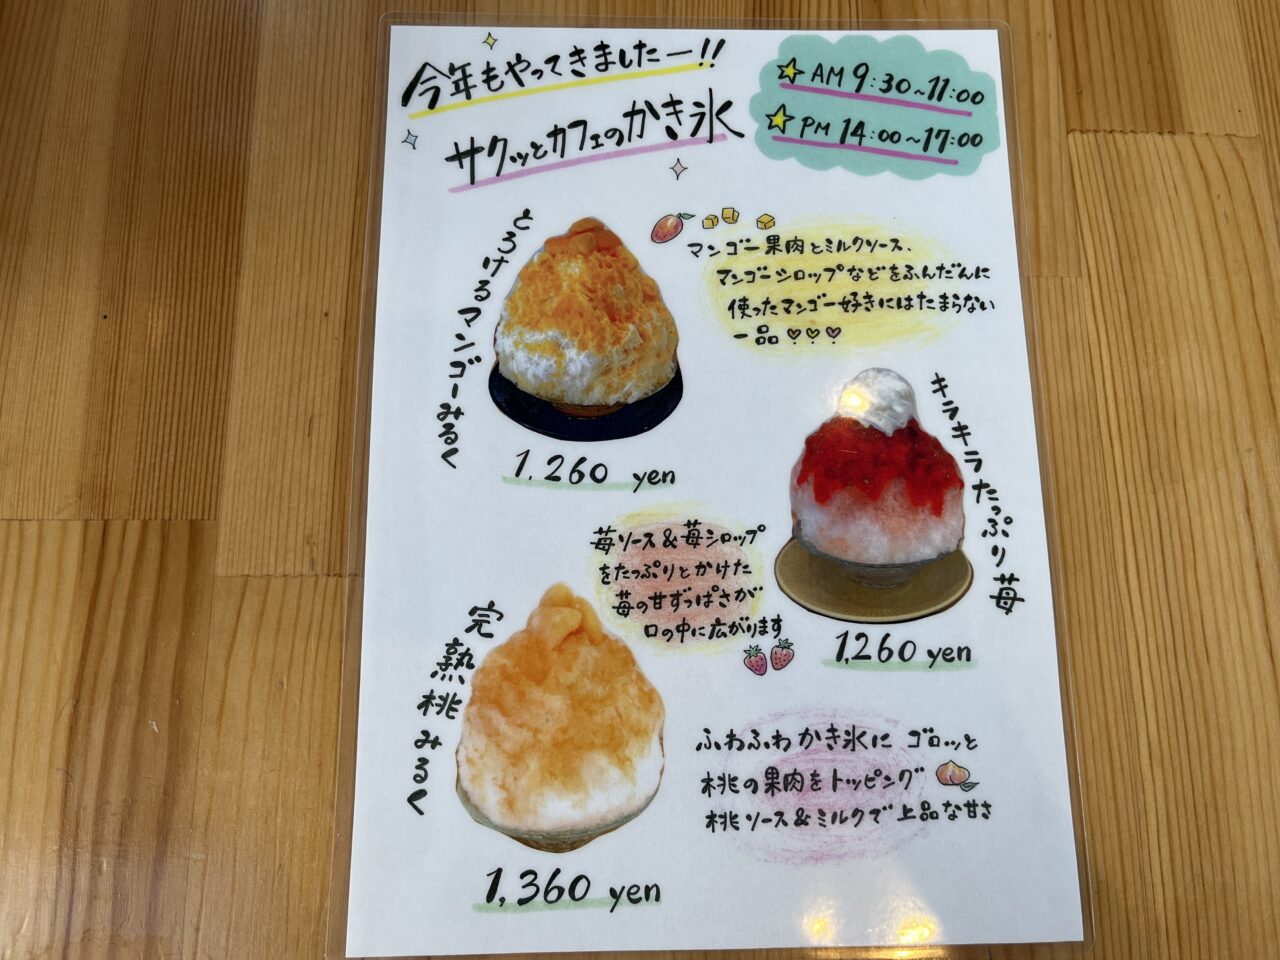 今年もやってきましたー!!
サクッとカフェのかき氷
AM 9:30~11:00
PM 14:00~17:00
とろけるマンゴーみるく
マンゴー果肉とミルクソース、
マンゴーシロップなどをふんだんに
使ったマンゴー好きにはたまらない
一品♡♡♡
1,260 yen
キラキラたっぷり苺
苺ソース&苺シロップ
をたっぷりとかけた
苺の甘ずっぱさが
口の中に広がります
1,260 yen
完熟桃みるく
ふわふわかき氷に ゴロッと
桃の果肉をトッピング
桃ソース&ミルクで上品な甘さ
1,360 yen